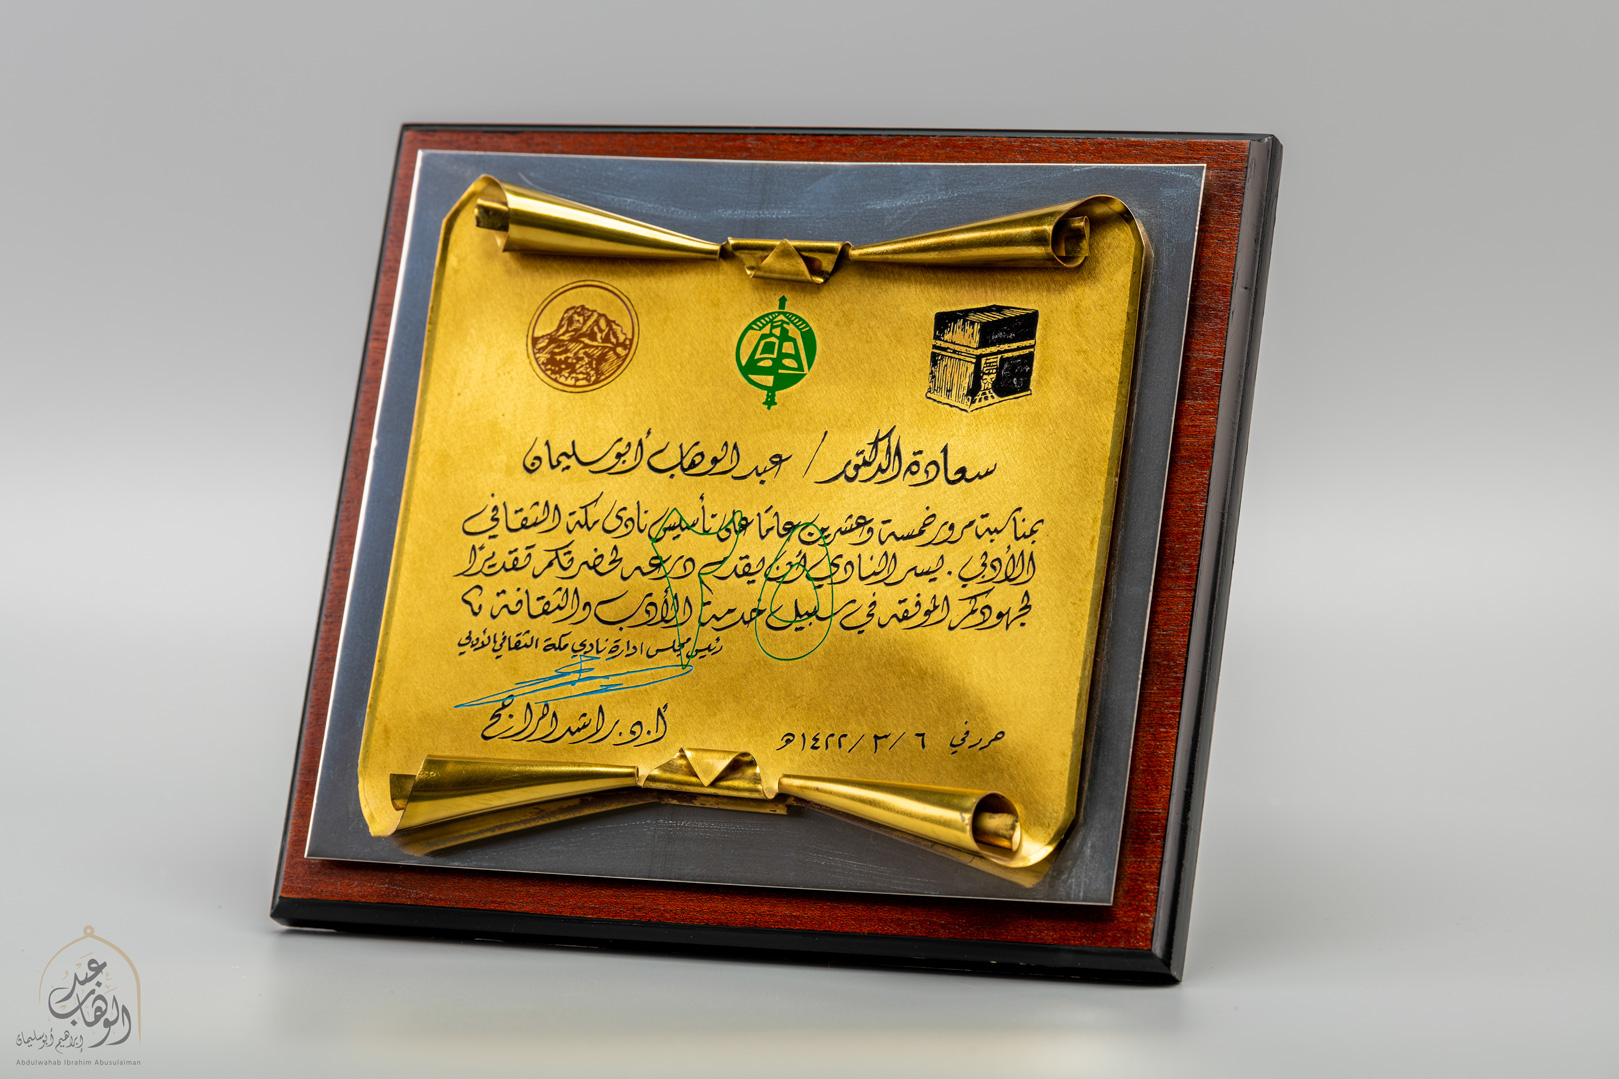 سعادة الدكتور / عبد الوهاب أبو سليمان
بمناسبة مرور خمسة وعشرين عامًا على تأسيس نادي مكة الثقافي
الأدبي . يسر النادي أن يقدم درعه لحضرتكم تقديرًا
لجهودكم الموفقه في سبيل خدمة الأدب والثقافة
٢٥
رئيس مجلس ادارة نادي مكة الثقافي الأدبي
أ.د. راشد الراجح
حرر في ٦ / ٣ / ١٤٢٢هـ
عبد
الوهاب
إبراهيم أبو سليمان
Abdulwahab Ibrahim Abusulaiman